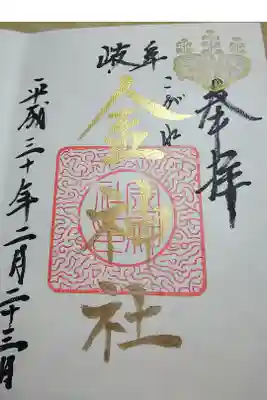 奉拝
岐阜
こがね
金神社
平成三十年二月二十三日